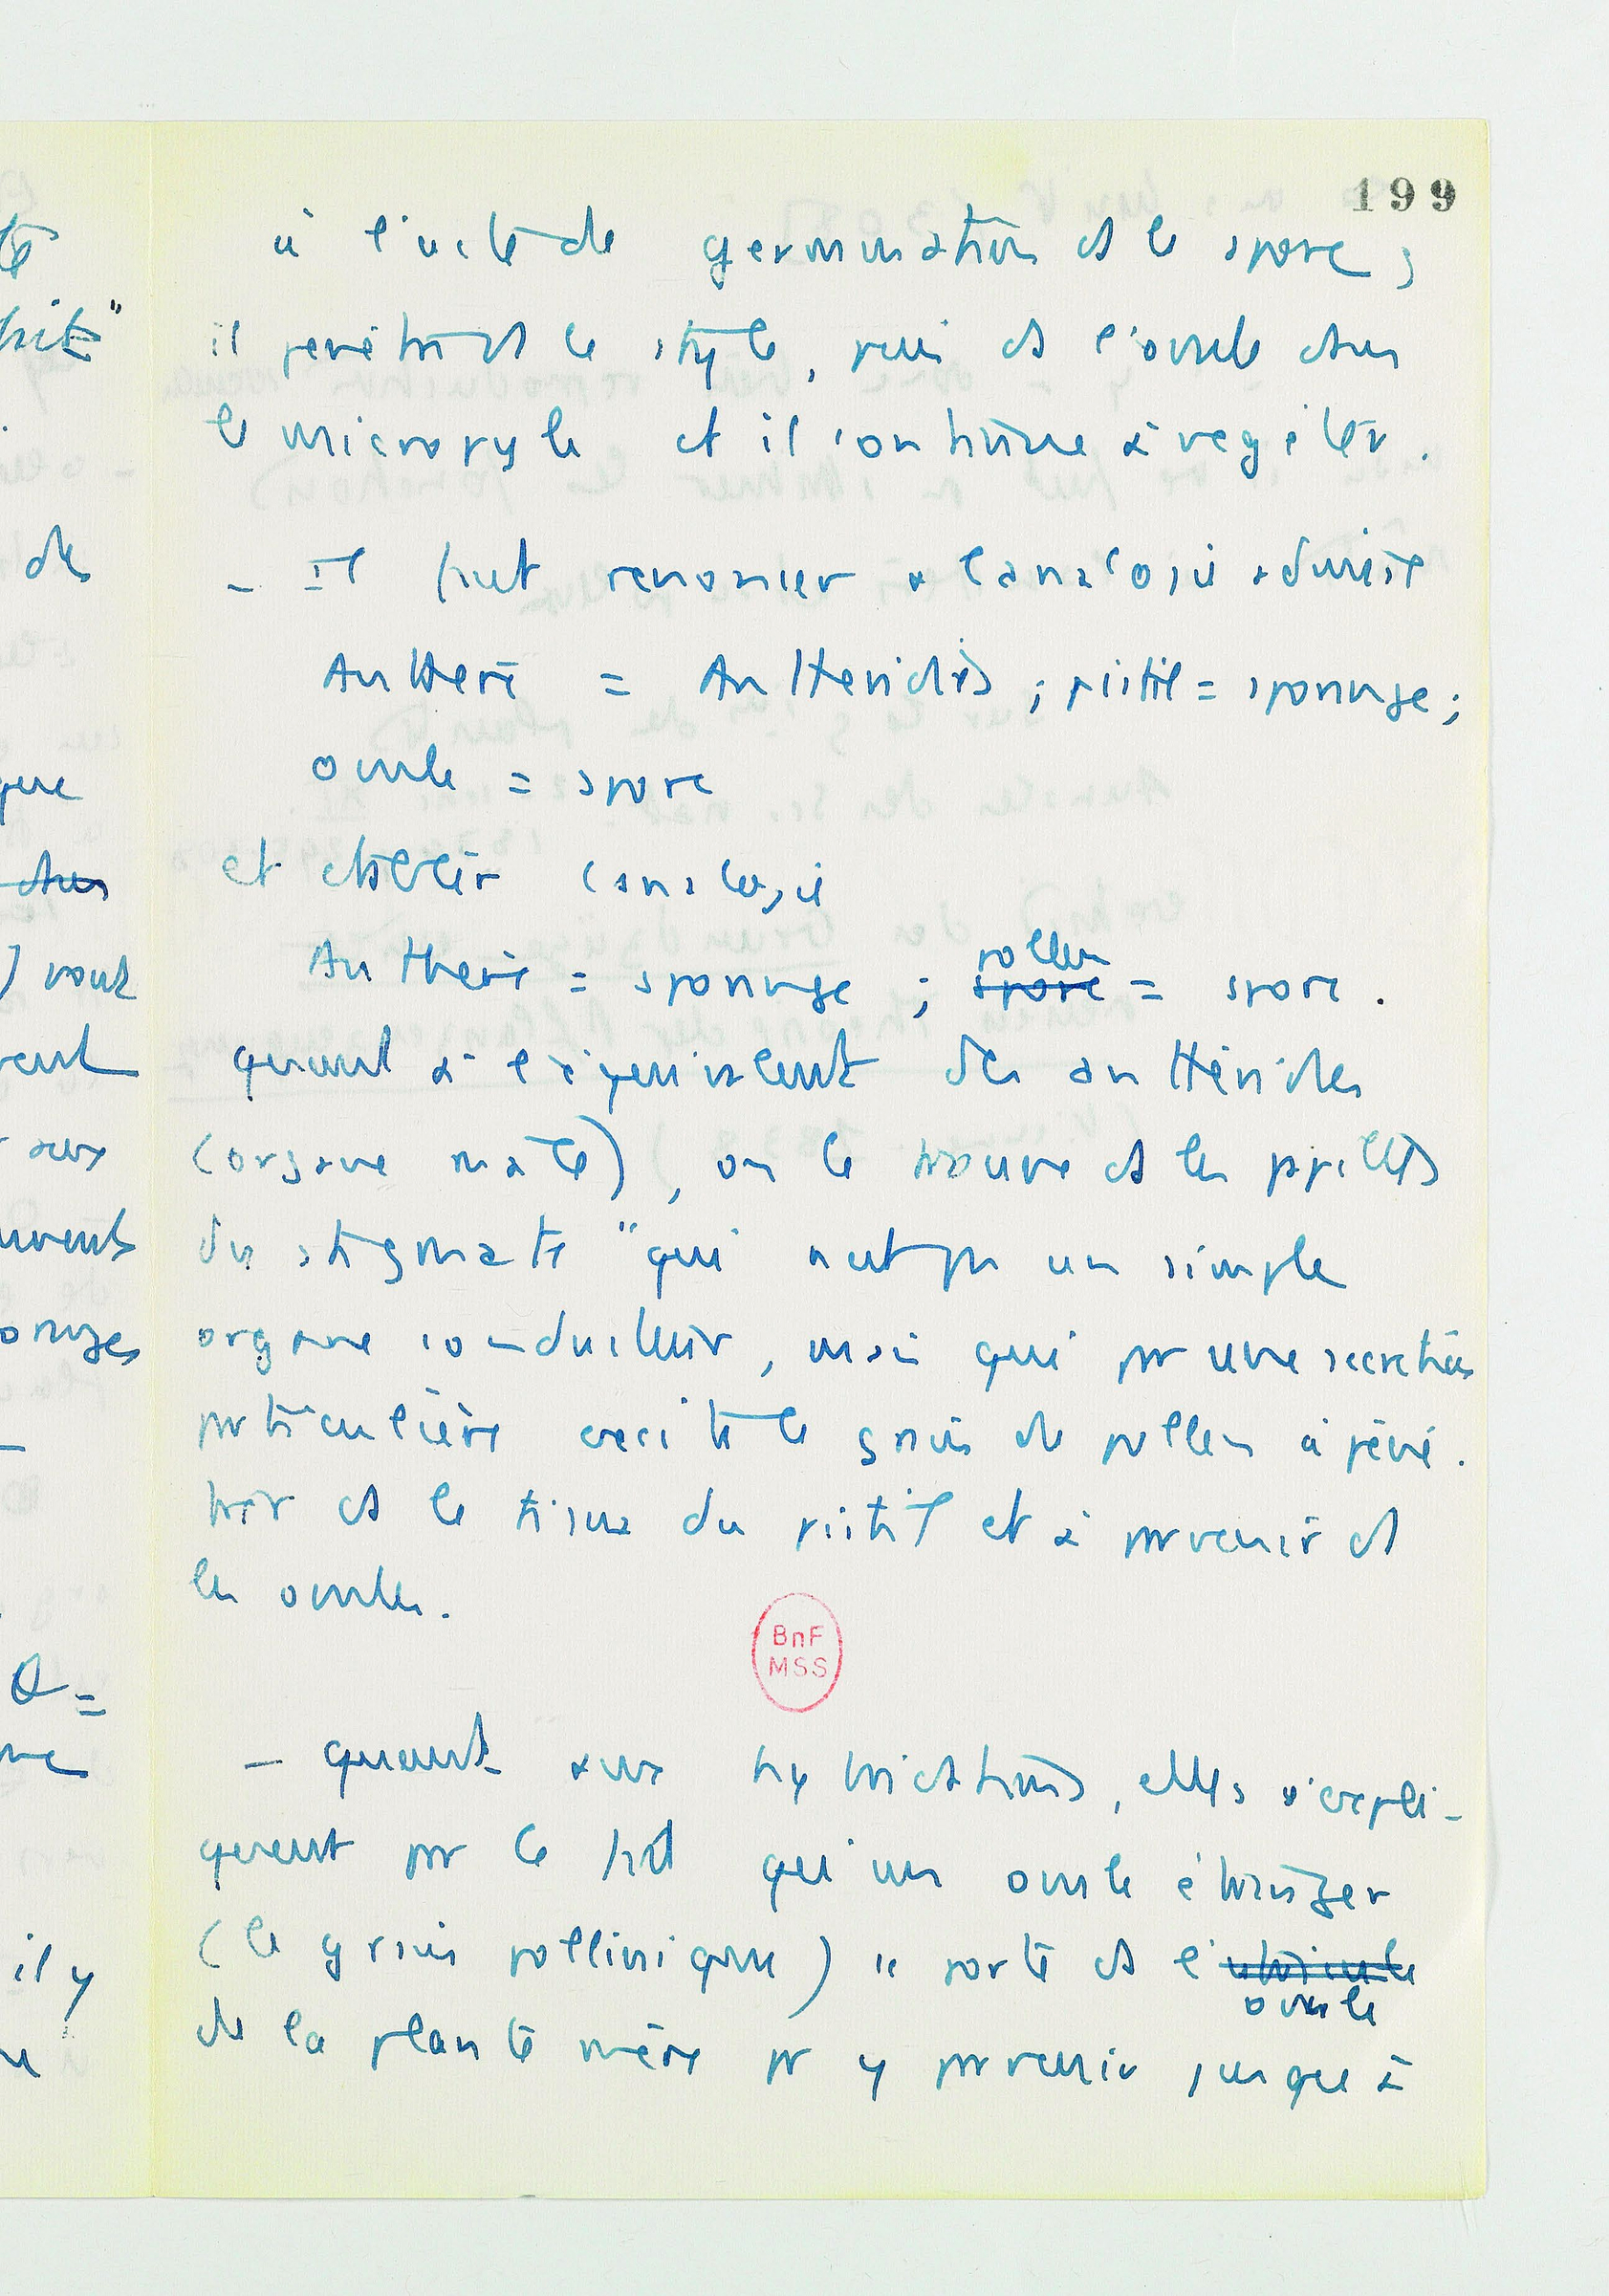 199
à l'acte de germination ds le spore ;
il pénètre ds le style, puis ds l'ovule dans
le micropyle et il continue à végéter.
- Il faut renoncer à l'analogie
Anthère = Anthéridies ; pistil = sporange ;
ovule = spore
et établir l'analogie
Anthère = sporange ; spore pollen = spore.
quant à l'équivalent des anthéridies
(organe mâle), on le trouve ds les papilles
du stigmate "qui n'est pas un simple
organe conducteur, mais qui par une secretion
particulière excite le grain de pollen à péné-
trer ds le tissu du pistil et à parvenir ds
les ovules.
BnF
MSS
- quant aux hybridations, elles s'expli-
quent par le fait qu'un ovule étranger
(le grain pollinique) " porté ds l'utricule
ovule
de la plante mère pr y parvenir jusque à
té
des
que
dans
) vont
aux
Q =
il y